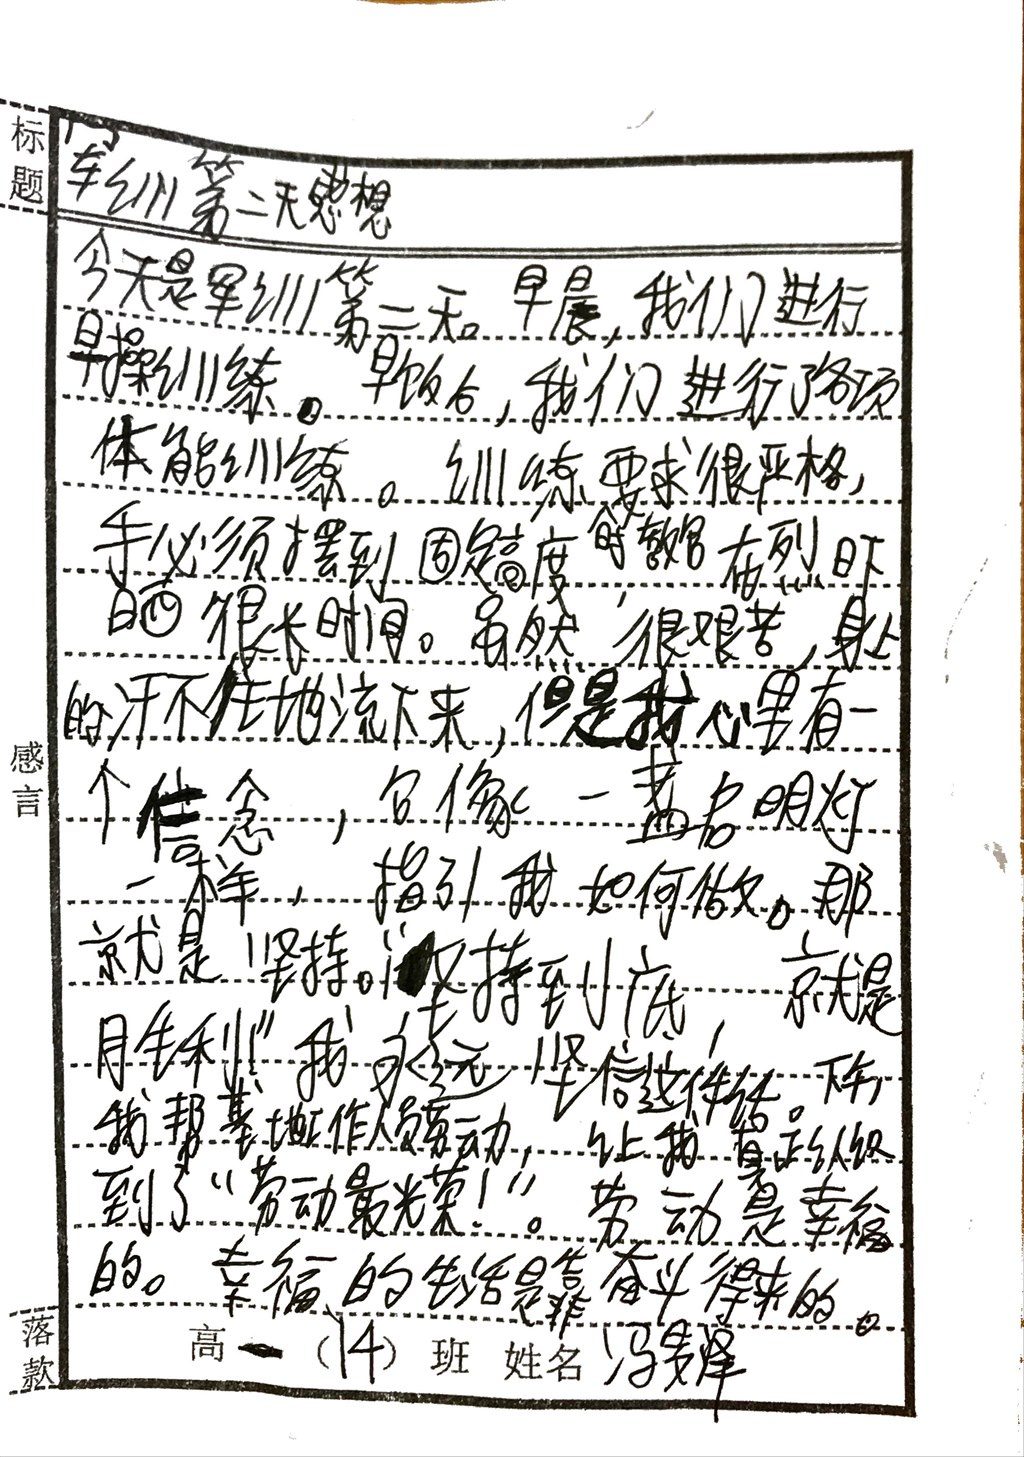 标题
军训第二天感想
今天是军训第二天。早晨，我们进行
早操训练。早饭后，我们进行了各项
体能训练。训练要求很严格，
手必须摆到固定高度，有时教官在烈日下
晒很长时间。虽然很艰苦，身上
的汗不住地流下来，但是我心里有一
个信念，它像一盏名明灯
一样，指引我如何做。那
就是坚持。“坚持到底，就是
胜利”我永远坚信这件话。下午，
我帮基地工作人员劳动，让我真正认识
到了“劳动最光荣！”。劳动是幸福
的。幸福的生活是靠奋斗得来的。
感言
落款
高一（14）班 姓名 冯